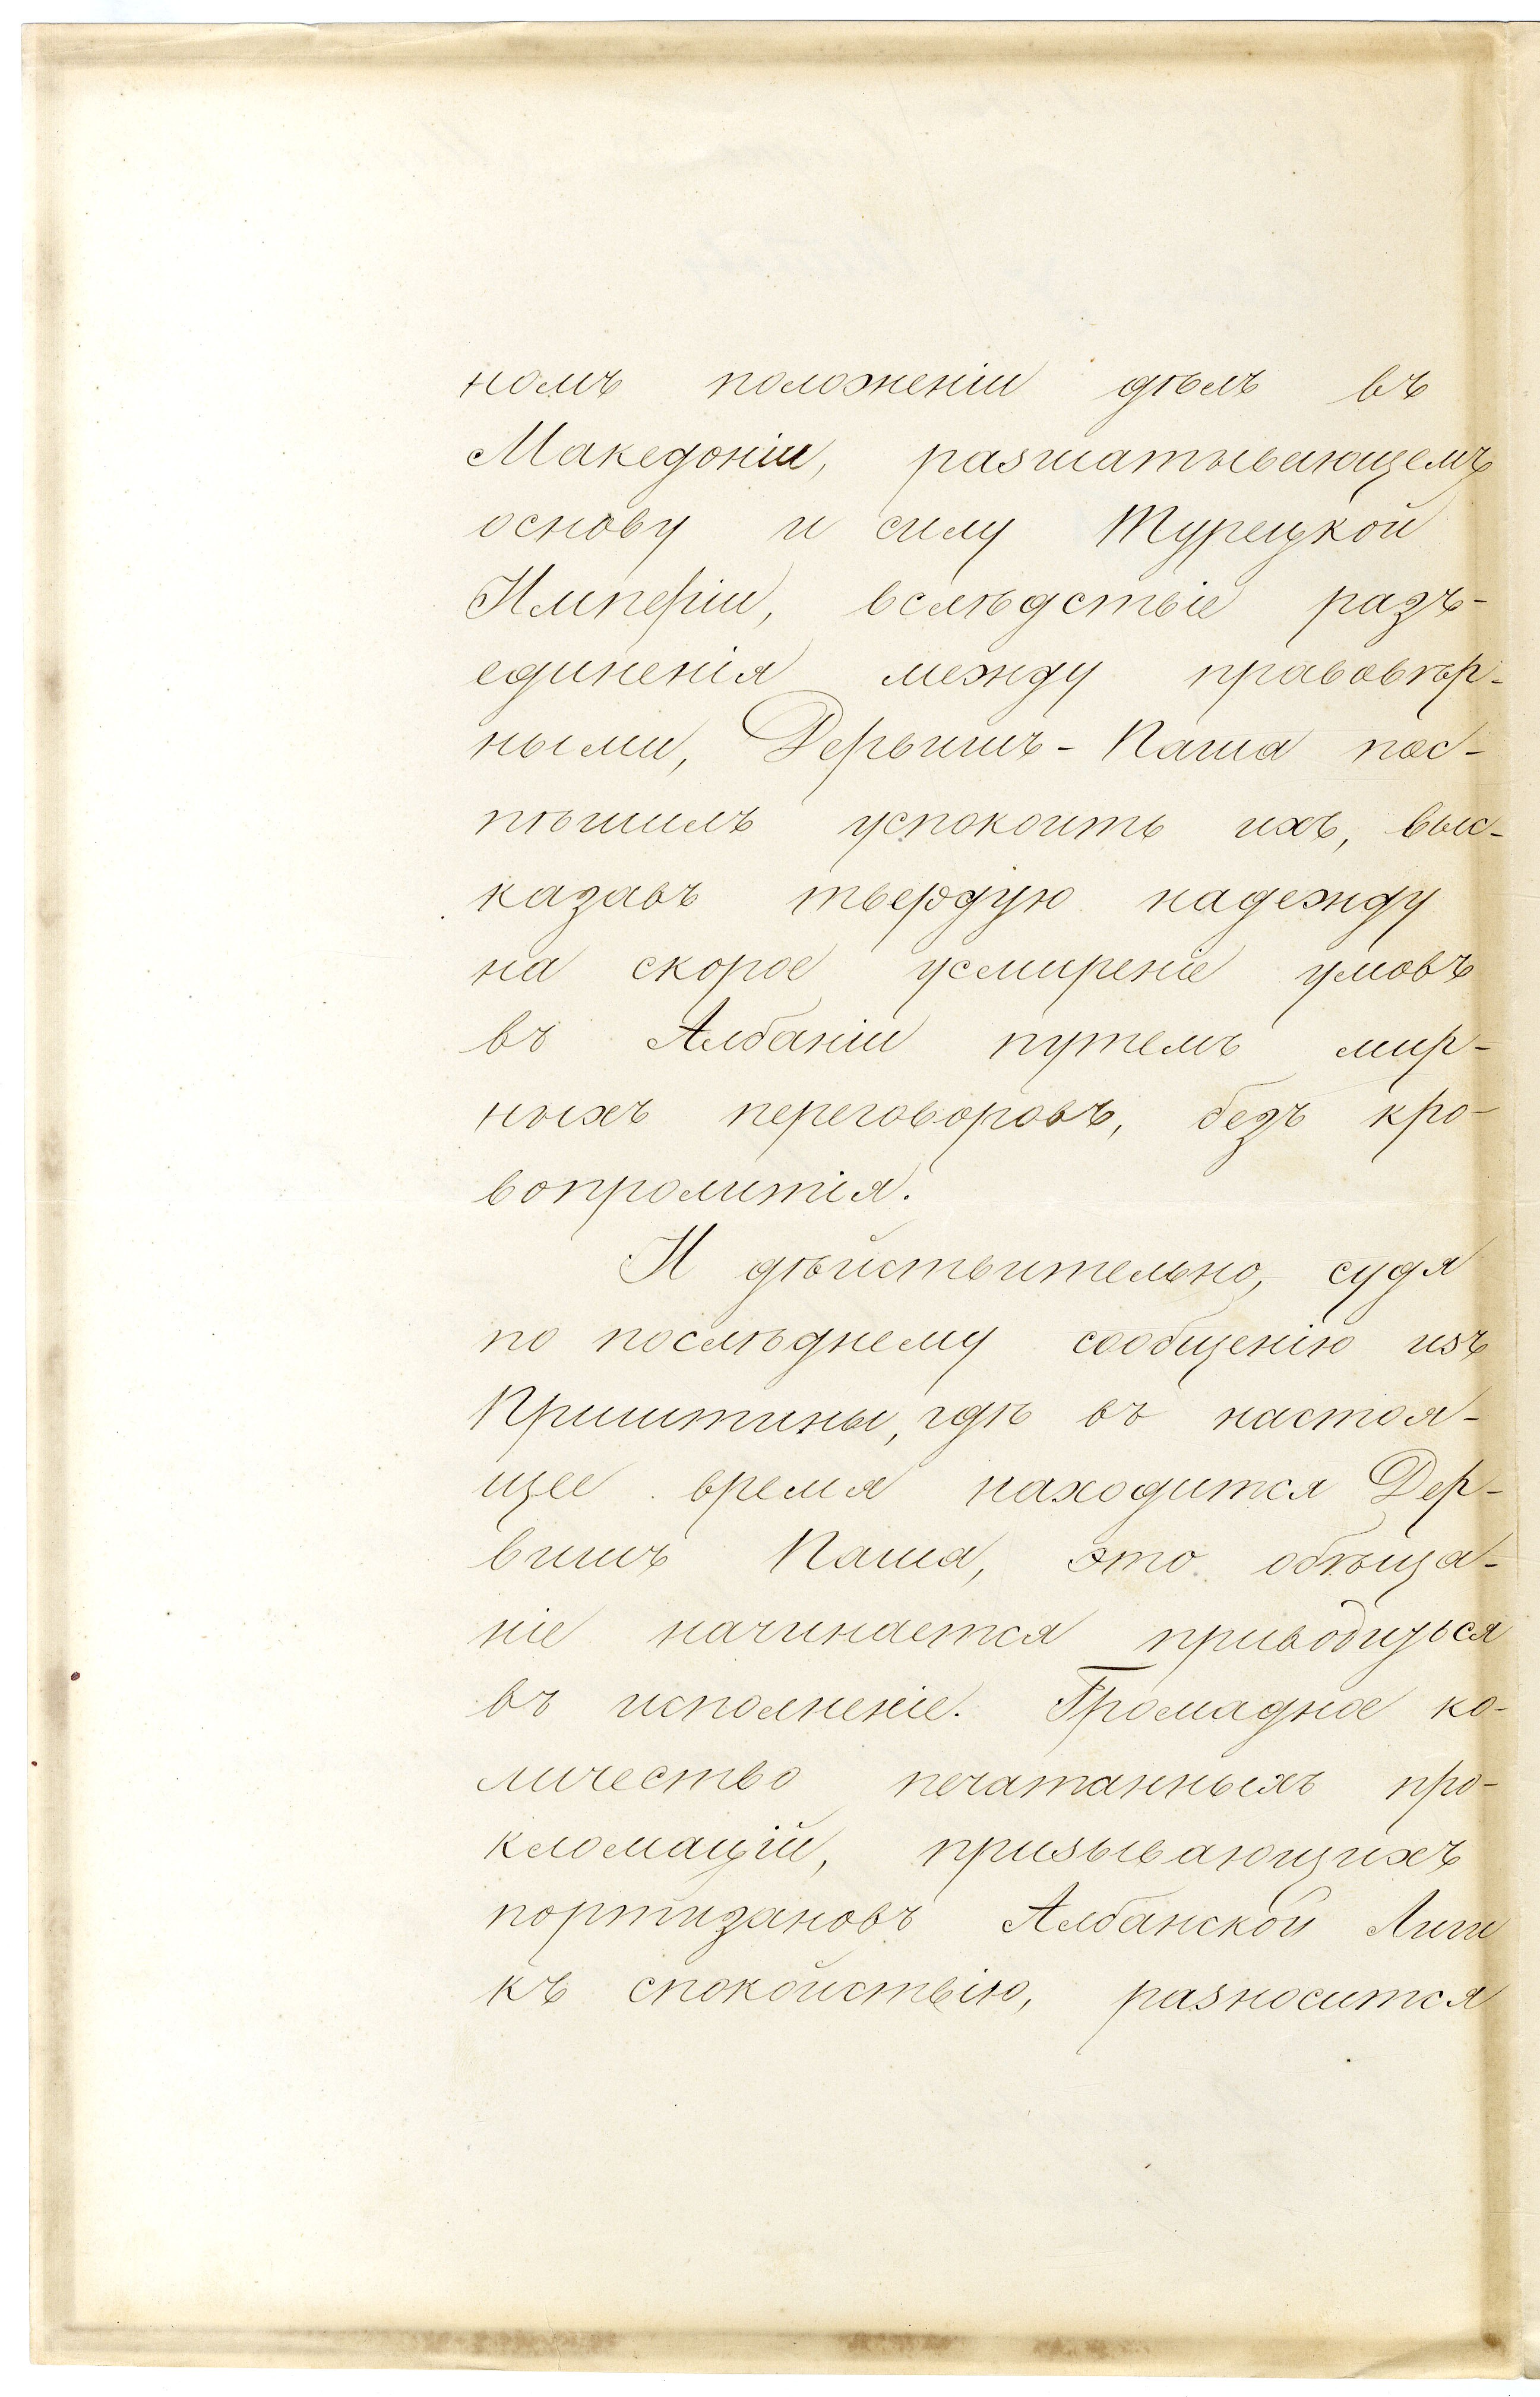 номъ положеніи дѣлъ въ
Македоніи, разшатывающемъ
основу и силу Турецкой
Имперіи, вслѣдствіе разъ-
единенія между правовѣр-
ными, Дервишъ-Паша пос-
пѣшилъ успокоить ихъ, выс-
казавъ твердую надежду
на скорое усмиреніе умовъ
въ Албаніи путемъ мир-
ныхъ переговоровъ, безъ кро-
вопролитія.
И дѣйствительно, судя
по послѣднему сообщенію изъ
Приштины, гдѣ въ настоя-
щее время находится Дер-
вишъ Паша, это обѣща-
ніе начинается приводиться
въ исполненіе. Громадное ко-
личество печатанныхъ про-
кломацій, призывающихъ
портизановъ Албанской Лиги
къ спокойствію, разносится